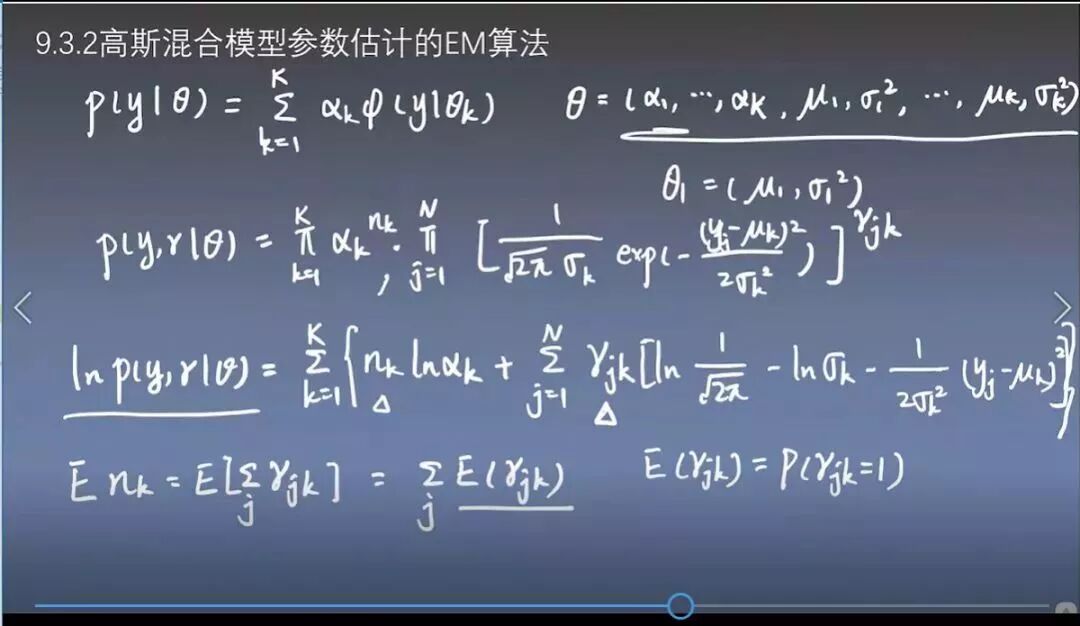 9.3.2高斯混合模型参数估计的EM算法
p(y|θ) = Σ_{k=1}^{K} α_k φ(y|θ_k) θ = (α_1, ⋯, α_K, μ_1, σ_1^2, ⋯, μ_K, σ_K^2)
θ_1 = (μ_1, σ_1^2)
p(y,r|θ) = Π_{k=1}^{K} α_k^{n_k} · Π_{j=1}^{N} [ 1/(√2π σ_k) exp(- (y_j-μ_k)^2 / 2σ_k^2 ) ]^{γ_jk}
ln p(y,r|θ) = Σ_{k=1}^{K} { n_k ln α_k + Σ_{j=1}^{N} γ_jk [ln 1/√2π - ln σ_k - 1/2σ_k^2 (y_j-μ_k)^2] }
E n_k = E[Σ_j γ_jk] = Σ_j E(γ_jk) E(γ_jk) = P(γ_jk=1)